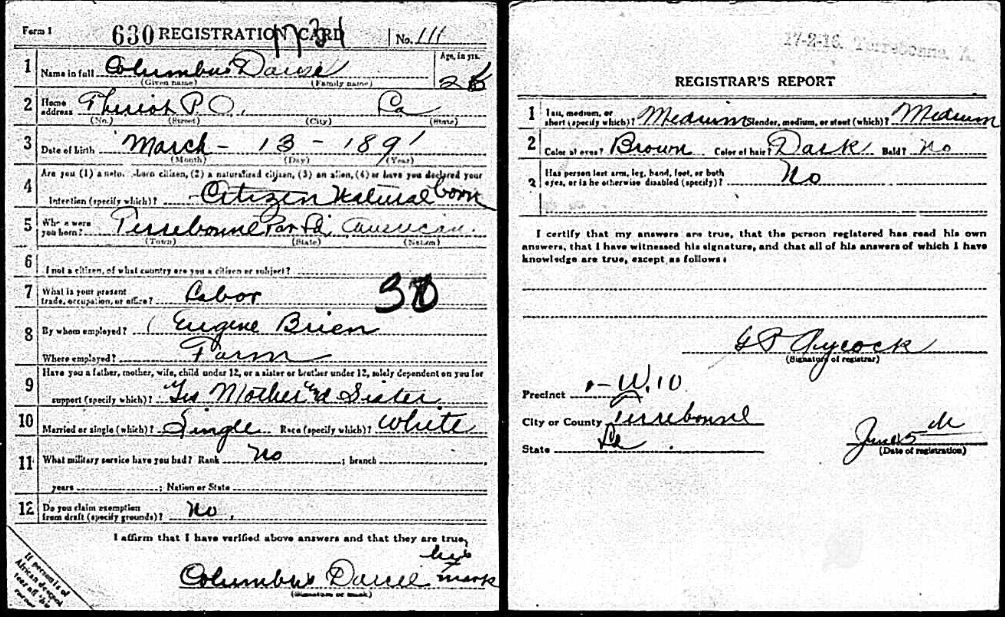 Form 1 630 REGISTRATION CARD No. 111
1 Name in full Columbus
(Given name) (Family name)
Age, in yrs.
2 Home address Theriot P.O. La
(No.) (Street) (City) (State)
3 Date of birth March - 13 - 1891
(Month) (Day) (Year)
4 Are you (1) a natural-born citizen, (2) a naturalized citizen, (3) an alien, (4) or have you declared your
intention (specify which)? Citizen Natural born
5 Where were you born? Terrebonne Par La American
(Town) (State) (Nation)
6 If not a citizen, of what country are you a citizen or subject?
7 What is your present trade, occupation, or office? Labor
8 By whom employed? Eugene Brien
Where employed? Farm
9 Have you a father, mother, wife, child under 12, or a sister or brother under 12, solely dependent on you for
support (specify which)? Yes Mother and Sister
10 Married or single (which)? Single Race (specify which)? White
11 What military service have you had? Rank No ; branch
years ; Nation or State
12 Do you claim exemption from draft (specify grounds)? No.
I affirm that I have verified above answers and that they are true.
his
Columbus mark
(Signature or mark)
If person is of African descent, tear off this corner
17-2-16. Terrebonne A.
REGISTRAR'S REPORT
1 Tall, medium, or short (specify which)? Medium Slender, medium, or stout (which)? Medium
2 Color of eyes? Brown Color of hair? Dark Bald? No
3 Has person lost arm, leg, hand, foot, or both
eyes, or is he otherwise disabled (specify)? No
I certify that my answers are true, that the person registered has read his own
answers, that I have witnessed his signature, and that all of his answers of which I have
knowledge are true, except as follows:
Aycock
(Signature of registrar)
Precinct W. 10
City or County Terrebonne
State La
June 5th
(Date of registration)